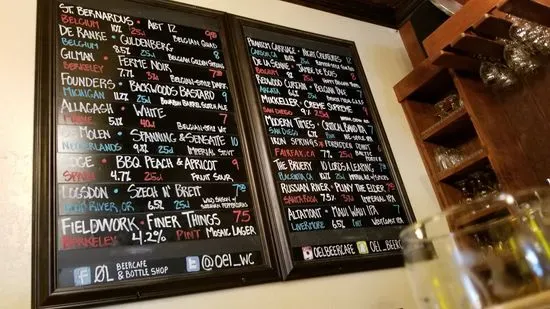 ST. BERNARDUS • ABT 12
BELGIUM 10% 25cl BELGIAN QUAD
DE RANKE • GULDENBERG 8
BELGIUM 8.5% 25cl BELGIAN GOLDEN STRONG
GILMAN • FERME NOIR
BERKELEY 7.7% 37cl BELGIAN-STYLE DARK
FOUNDERS • BACKWOODS BASTARD 8
MICHIGAN 11% 25cl BOURBON BARREL SCOTCH ALE
ALLAGASH • WHITE 7
MAINE 5.1% 40cl BELGIAN-STYLE WIT
DE MOLEN • SPANNING & SENSATIE 10
NETHERLANDS 9.8% 25cl IMPERIAL STOUT
EDGE • BBQ PEACH & APRICOT 9
SPAIN 4.7% 25cl FRUIT SOUR
LOGSDON • SZECH N' BRETT
HOOD RIVER, OR 6.5% 25cl WILD SAISON W/ SICHUAN PEPPERCORNS
FIELDWORK • FINER THINGS 7.5
BERKELEY 4.2% PINT MOSAIC LAGER
ØL BEERCAFE & BOTTLE SHOP @OEL_WC
PHANTOM CARRIAGE • NIGHT CREATURES
CARSON, CA
DE LA SENNE • JAMBE DE BOIS
BELGIUM 8%
REDWOOD CURTAIN • BELGIAN PALE
ARCATA
MIKKELLER • CREME SUPREME
SAN DIEGO 9% 25cl
MODERN TIMES • CRITICAL BAND IPA 7
SAN DIEGO
IRON SPRINGS •
FAIRFAX, CA 7% BALTIC
THE BRUERY • 10 LORDS A LEAPING
PLACENTIA, CA
RUSSIAN RIVER • PLINY THE ELDER
SANTA ROSA 8%
ALTAMONT • MAUI WAUI IPA 7
LIVERMORE 6.5% PINT WEST COAST IPA
OELBEERCAFE OEL_BEER